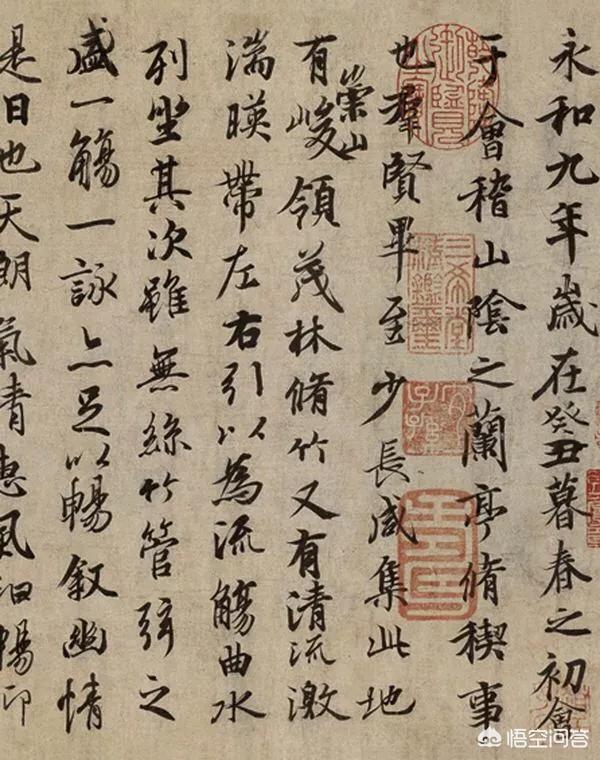 永和九年歲在癸丑暮春之初會
于會稽山陰之蘭亭脩稧事
也羣賢畢至少長咸集此地
有崇山峻領茂林脩竹又有清流激
湍暎帶左右引以為流觴曲水
列坐其次雖無絲竹管弦之
盛一觴一詠亦足以暢敘幽情
是日也天朗氣清惠風和暢仰
悟空问答